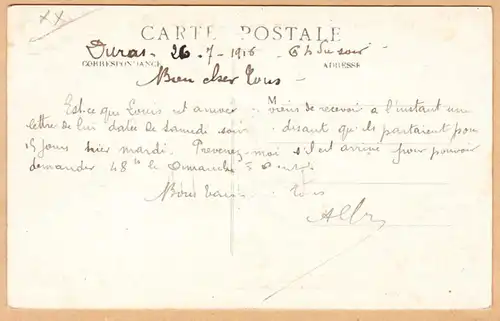 XX.
CARTE POSTALE
Duras - 26-7-1916 6 h du soir
CORRESPONDANCE ADRESSE
Bien cher Tous -
Est-ce que Louis est arrivé M viens de recevoir à l'instant une
lettre de lui datée de Samedi soir disant qu'ils partaient pour
15 jours hier mardi. Prevenez-moi s'il est arrivé pour pouvoir
demander 48h le Dimanche
Tous